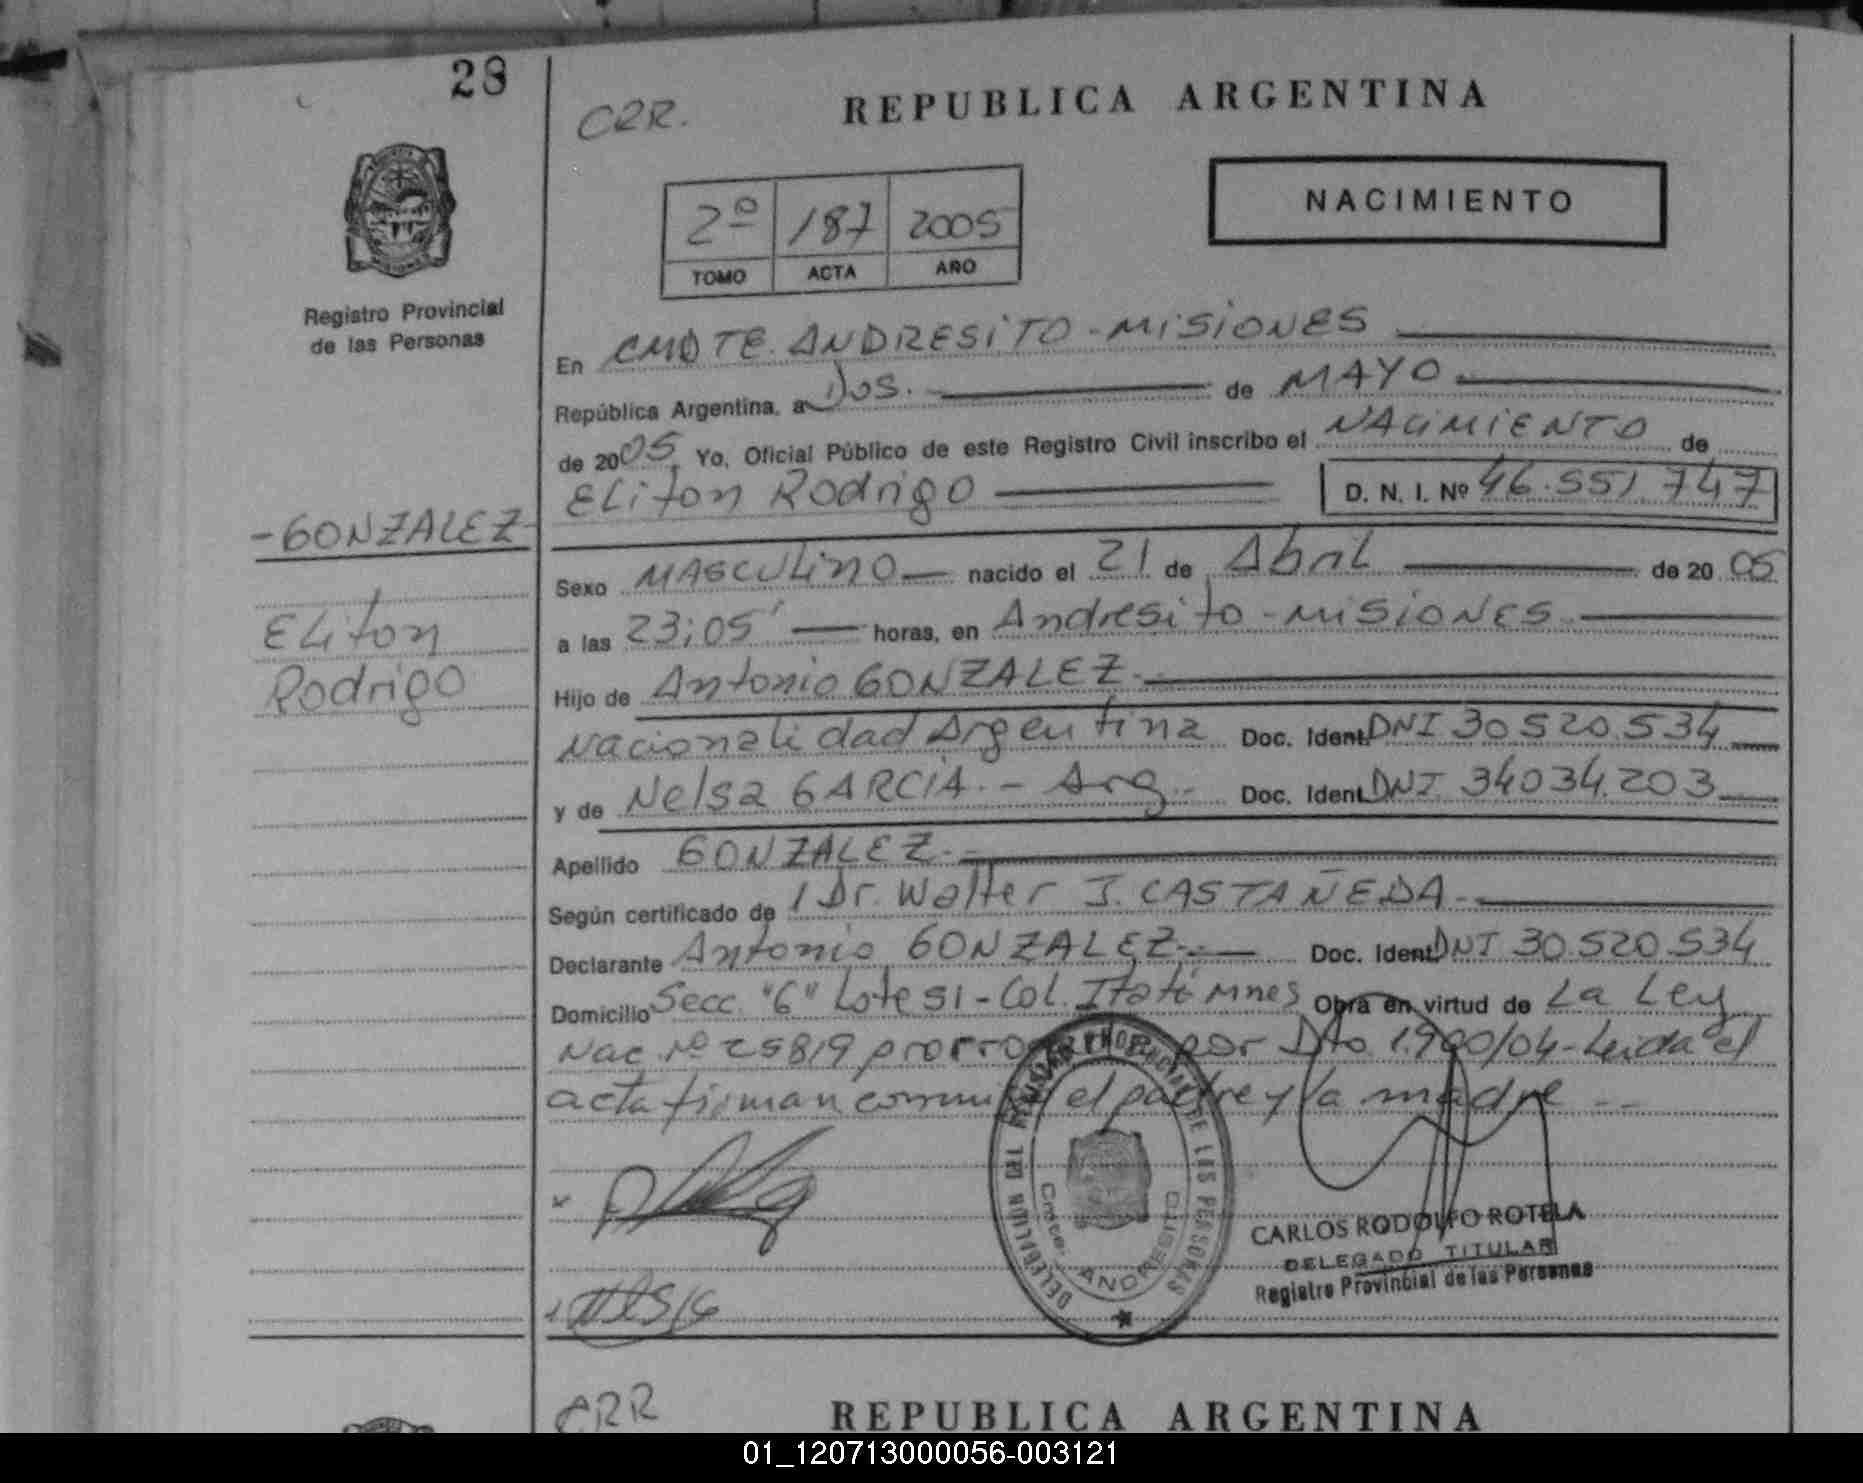 28
CRR.
REPUBLICA ARGENTINA
Registro Provincial
de las Personas
2º 187 2005
TOMO ACTA AÑO
NACIMIENTO
En CMDTE. ANDRESITO - MISIONES
República Argentina, a Dos. de MAYO
de 2005, Yo, Oficial Público de este Registro Civil inscribo el NACIMIENTO de
Eliton Rodrigo D. N. I. Nº 46.551.747
- GONZALEZ -
Eliton
Rodrigo
Sexo MASCULINO nacido el 21 de Abril de 2005
a las 23:05' horas, en Andresito - MISIONES.
Hijo de Antonio GONZALEZ.
Nacionalidad Argentina Doc. Ident. DNI 30.520.534
y de Nelsa GARCIA. - Arg. Doc. Ident. DNI 34034.203
Apellido GONZALEZ.
Según certificado de / Dr. Walter J. CASTAÑEDA.
Declarante Antonio GONZALEZ. Doc. Ident. DNI 30.520.534
Domicilio Secc. "6" Lote 51 - Col. Itatí Mnes Obra en virtud de La Ley
Nac. Nº 25819 por Dto 1.900/04 - Leída el
acta firman el padre y la madre --
DELEGACION DEL REGISTRO PROVINCIAL DE LAS PERSONAS
Cmdte. ANDRESITO
CARLOS RODOLFO ROTELA
DELEGADO TITULAR
Registro Provincial de las Personas
CRR
REPUBLICA ARGENTINA
01_120713000056-003121